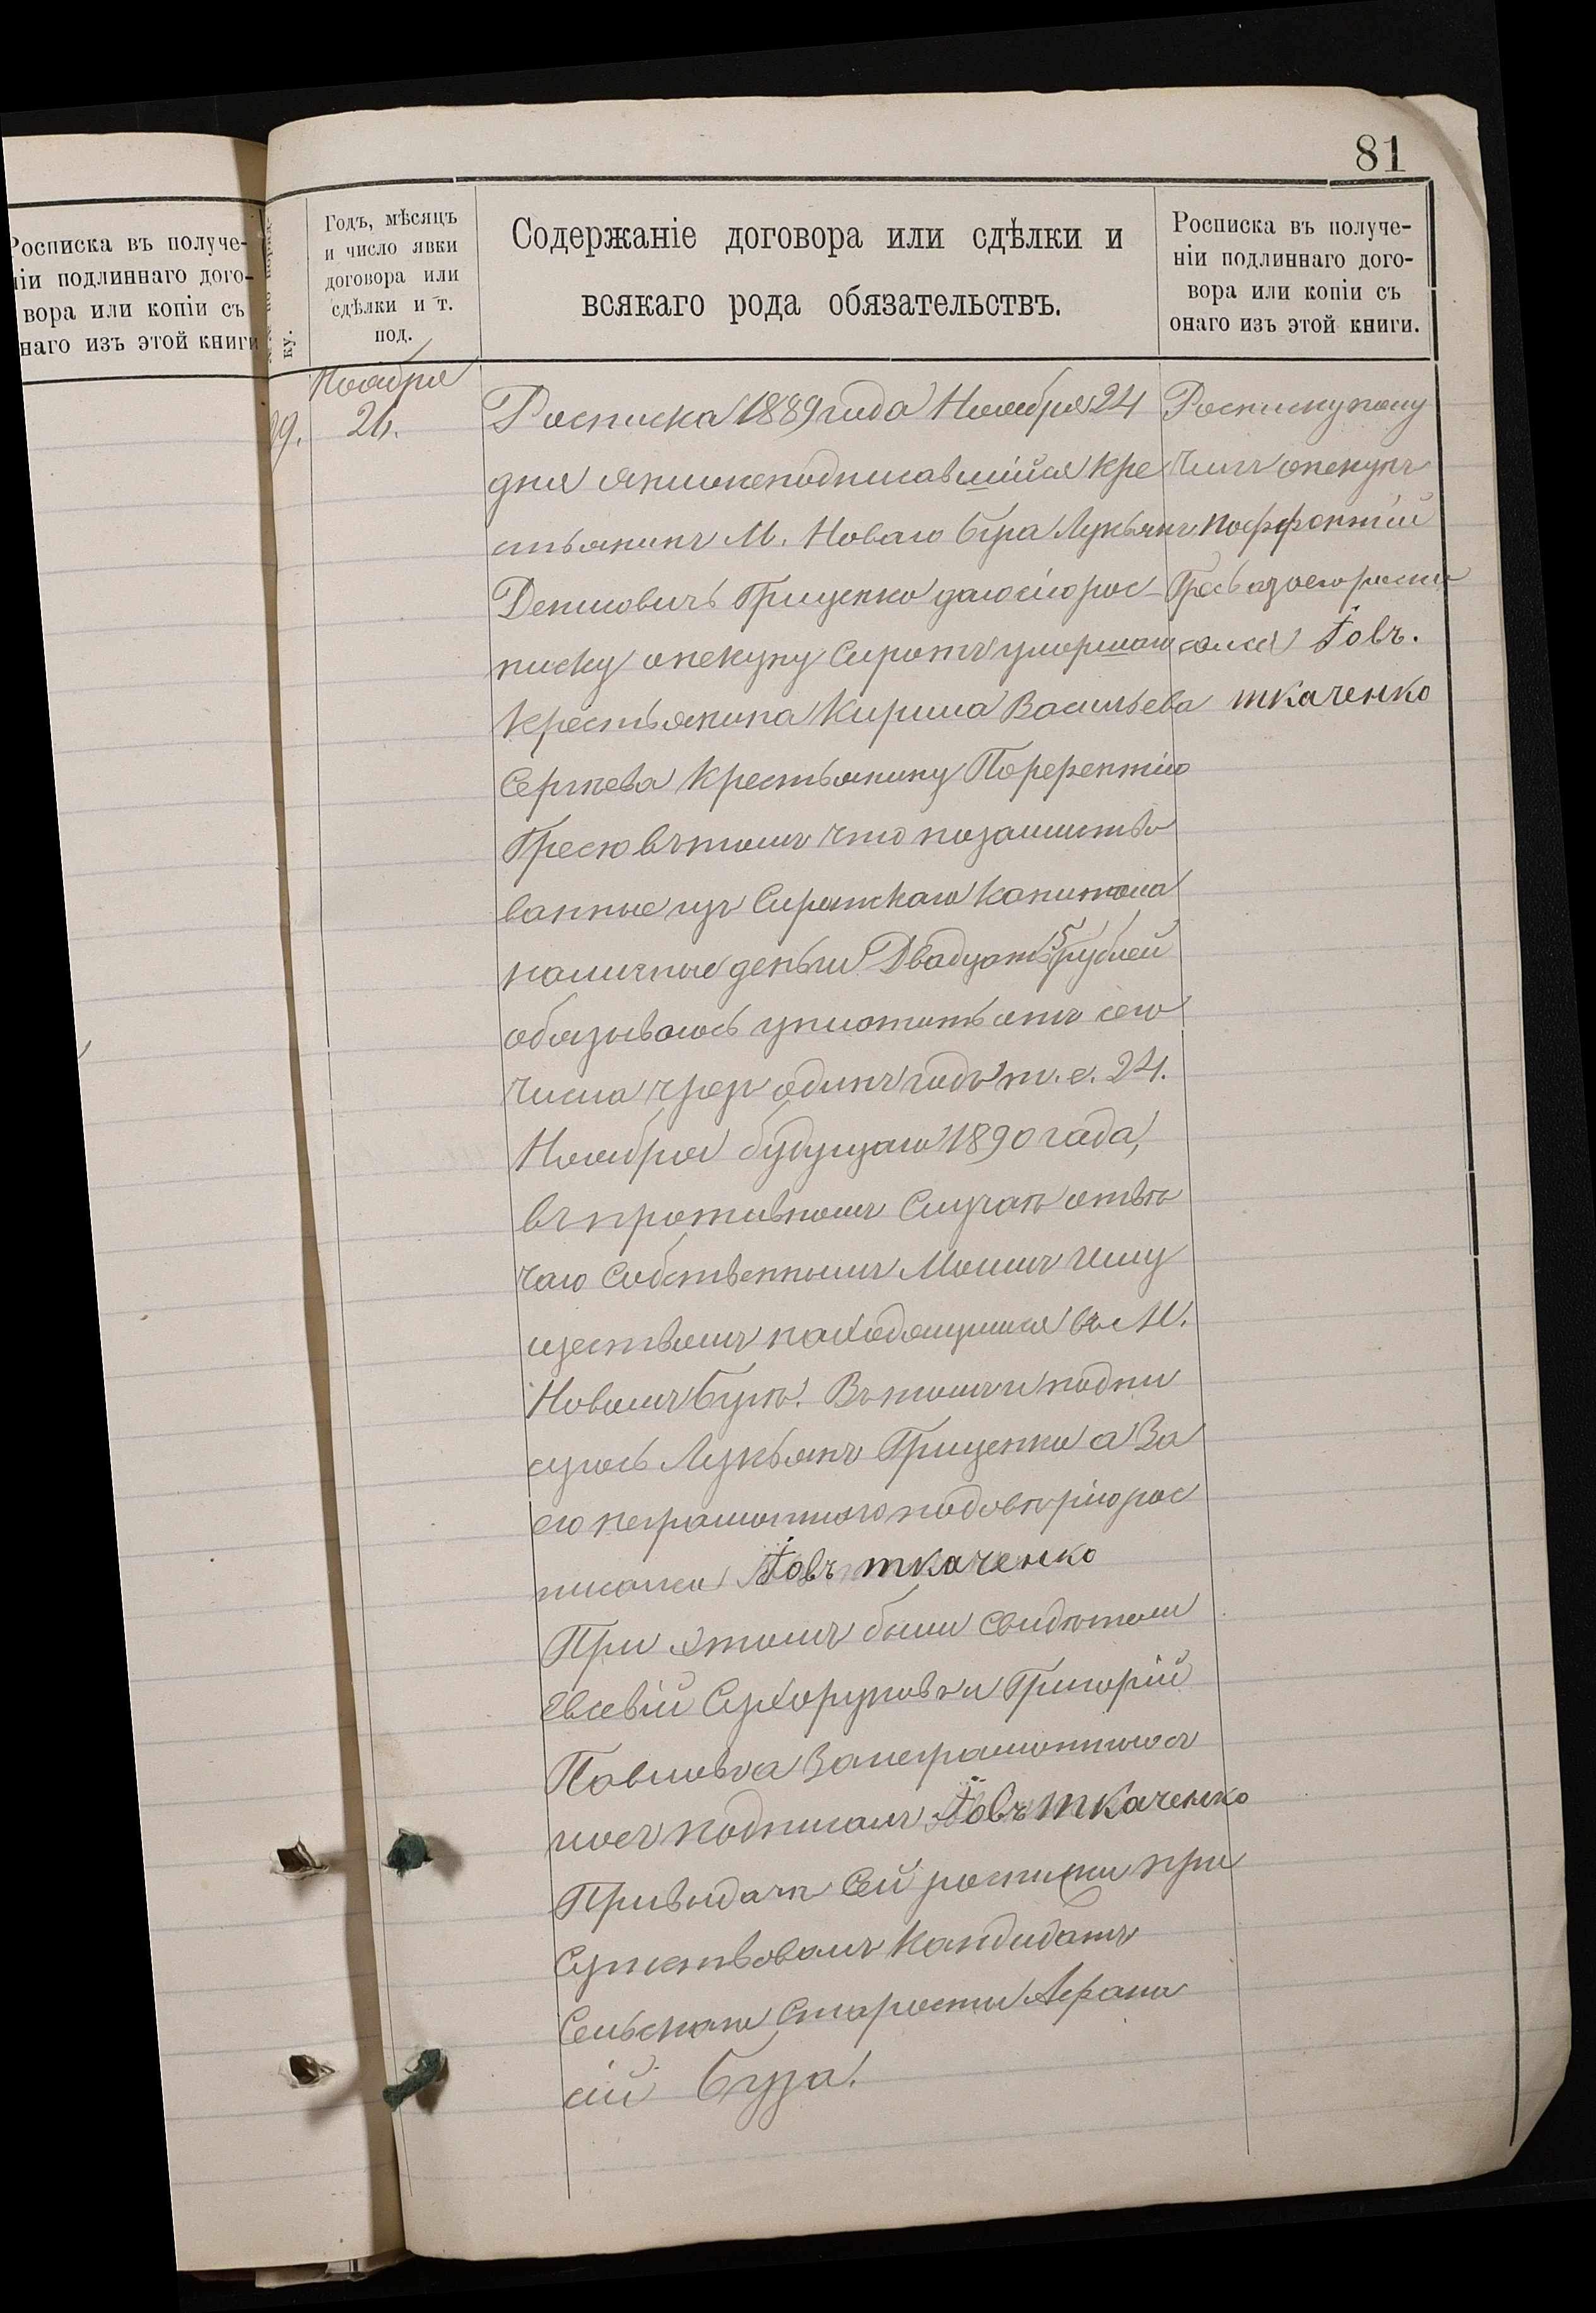 81
Росписка въ получе-
ніи подлиннаго дого-
вора или копіи съ
наго изъ этой книги
ку.
Годъ, мѣсяцъ
и число явки
договора или
сдѣлки и т.
под.
Содержаніе договора или сдѣлки и
всякаго рода обязательствъ.
Росписка въ получе-
ніи подлиннаго дого-
вора или копіи съ
онаго изъ этой книги.
Ноября
24.
Росписка 1889 года Ноября 24
дня я нижеподписавшійся кре
стьянинъ М. Новаго Буга Лукьянъ
Денисовичъ Гриценко даю сію рос
писку опекуну Сиротъ умершаго
крестьянина Кирила Васильева
Сергѣева Крестьянину
Гресю въ томъ что позаимство
ванные изъ Сиротскаго Капитала
наличные деньги Двадцать 5 рублей
обязываюсь уплотить отъ сего
числа чрезъ одинъ годъ т. е. 24.
Ноября будущаго 1890 года,
въ противномъ Случаѣ отвѣ
чаю Собственнымъ Моимъ Иму
ществомъ находящимся въ М.
Новомъ Бугѣ. Въ томъ и подпи
суюсь Лукьянъ Гриценко а За
его неграмотного по довѣрію рос
писался Іовъ ткаченко
При этомъ были свидѣтели
Евсевій Сухоруковъ и Григорій
Павловъ а За неграмотныхъ
ихъ подписалъ Іовъ ткаченко
При выдачѣ Сей росписки при
Сутствовалъ Кандидатъ
Сельскаго Старосты Афана
сій Буза.
Росписку полу
чилъ опекунъ
Гресь а за его роспи
сался Іовъ.
ткаченко